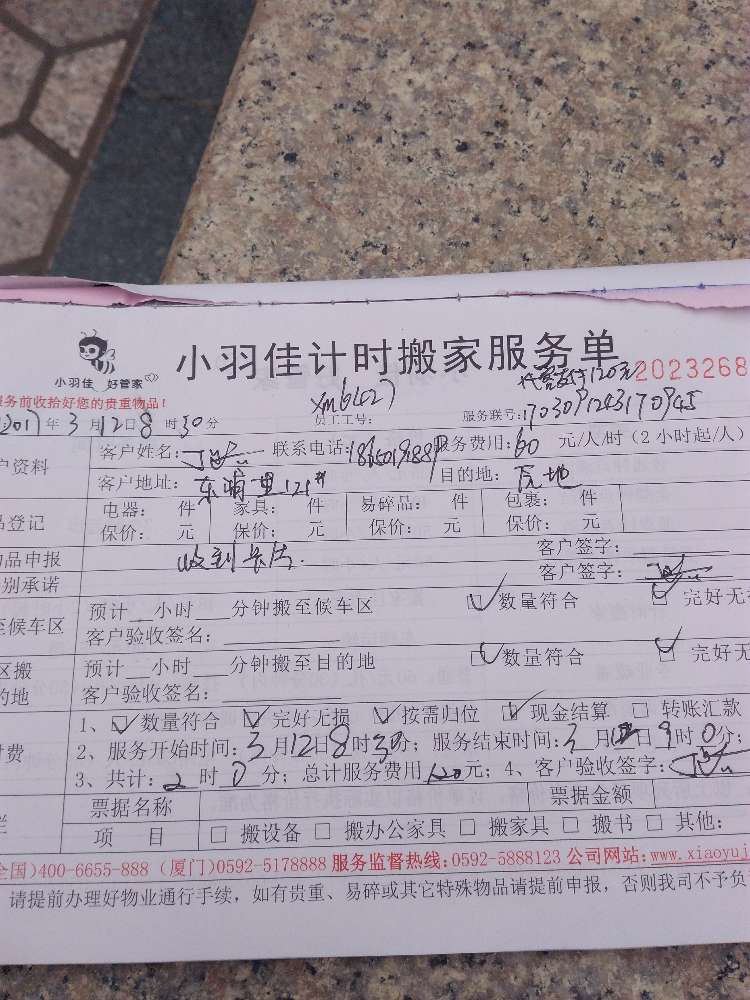 小羽佳 好管家
小羽佳计时搬家服务单
代需支付120元
2023268
务前收拾好您的贵重物品!
2017年 3月12日8时30分 员工工号: xm6L027 服务联号: 1703091243170945
户资料 客户姓名: 联系电话: 服务费用: 60 元/人/时(2小时起/人)
客户地址: 东浦里121# 目的地: 同地
品登记 电器: 件 家具: 件 易碎品: 件 包裹: 件
保价: 元 保价: 元 保价: 元 保价: 元
物品申报 收到 客户签字:
别承诺 客户签字:
至候车区 预计 小时 分钟搬至候车区 ☑数量符合 ☑ 完好无
客户验收签名:
区搬 预计 小时 分钟搬至目的地 ☑数量符合 ☑ 完好无
的地 客户验收签名:
付费 1、☑数量符合 ☑完好无损 ☑按需归位 ☑现金结算 □ 转账汇款
2、服务开始时间: 3月12日8时30分; 服务结束时间: 3月12日9时0分;
3、共计: 2时0分; 总计服务费用120元; 4、客户验收签字:
栏 票据名称 票据金额
项 目 □ 搬设备 □ 搬办公家具 □ 搬家具 □ 搬书 □ 其他:
全国)400-6655-888 (厦门)0592-5178888 服务监督热线:0592-5888123 公司网站:www.xiaoyuj
请提前办理好物业通行手续,如有贵重、易碎或其它特殊物品请提前申报,否则我司不予负